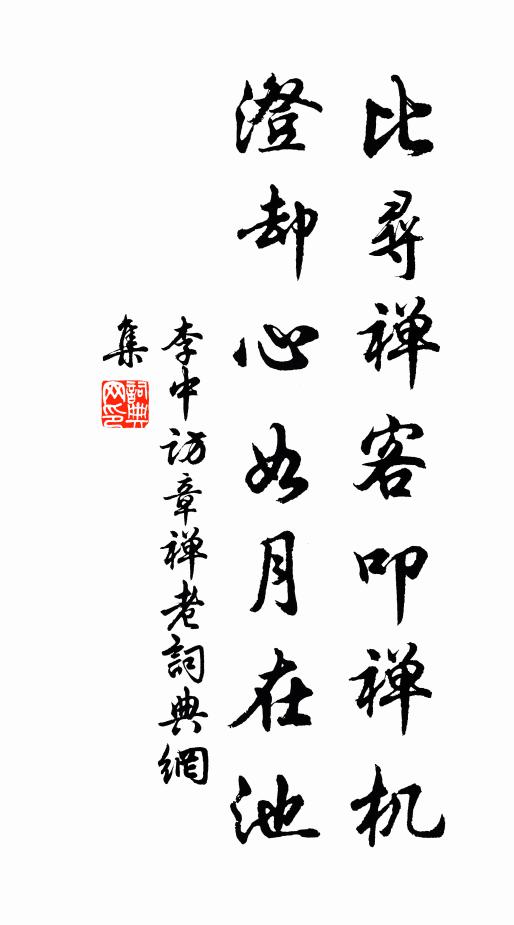 比尋禅客叩禅机
澄却心如月在池
李中访章禅老詞典網
集
詞典网印